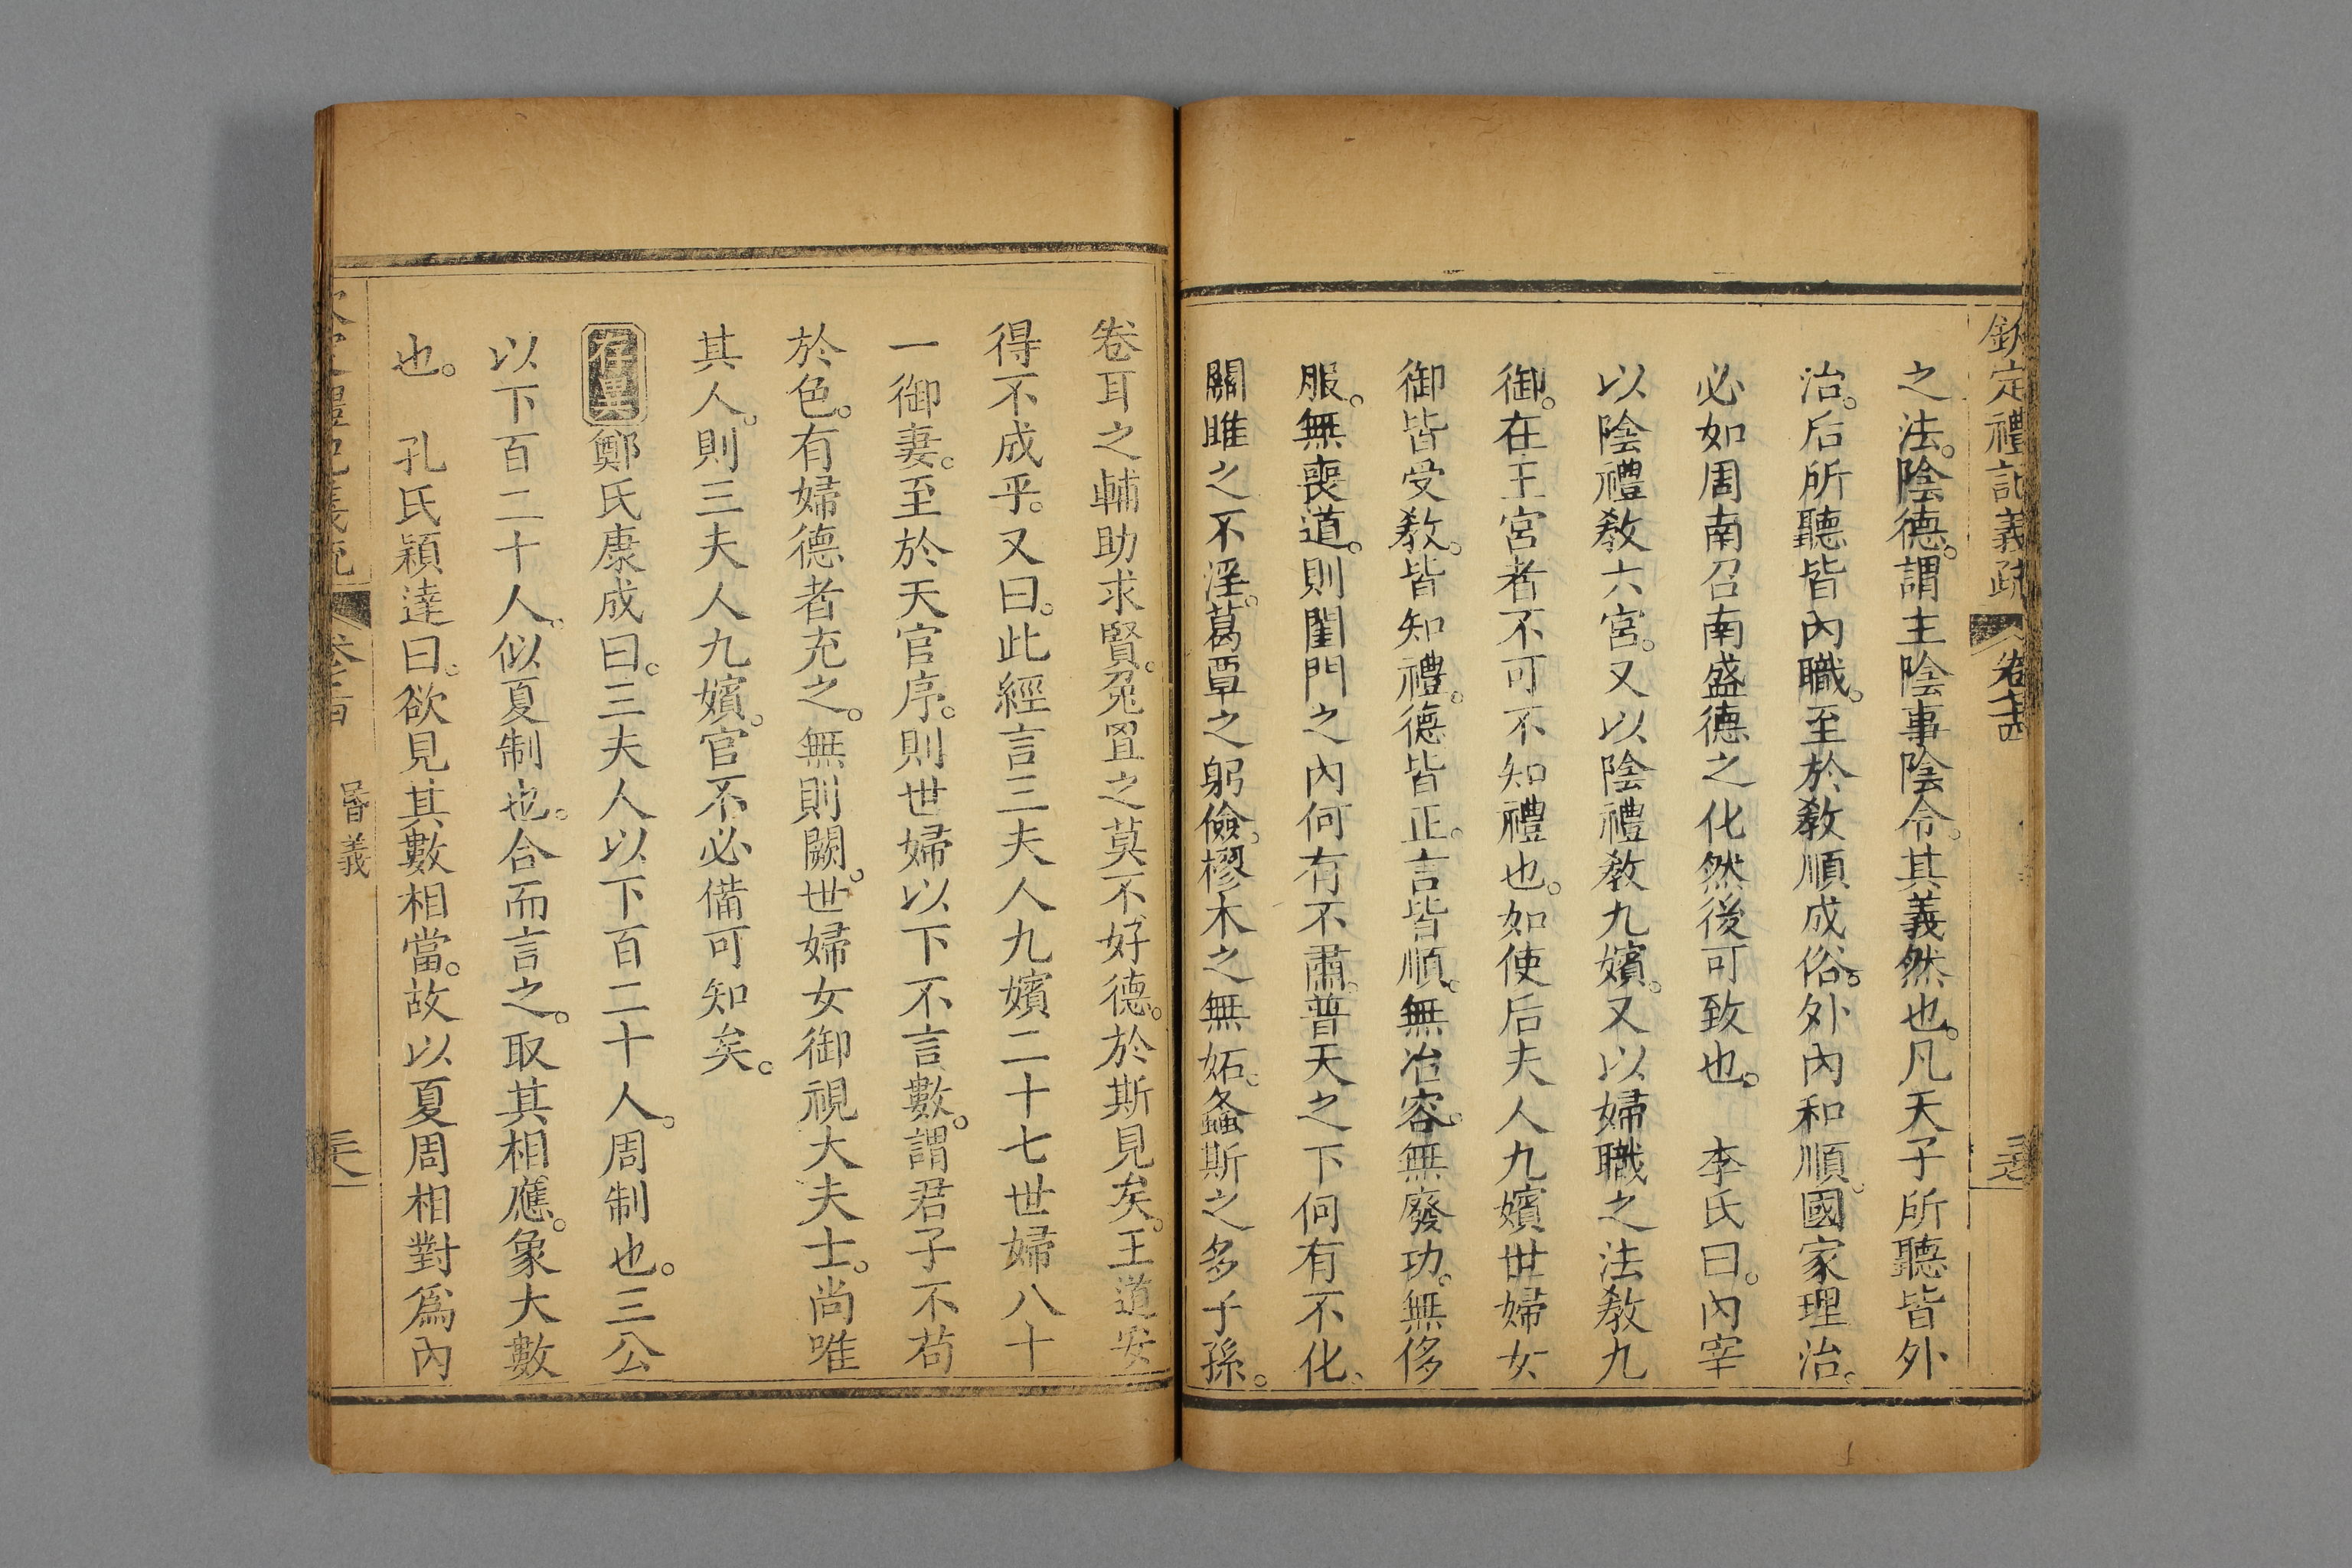 欽定禮記義疏 卷七十四
之法。陰德。謂主陰事陰令。其義然也。凡天子所聽皆外
治。后所聽皆內職。至於敎順成俗。外內和順。國家理治。
必如周南召南盛德之化然後可致也。 李氏曰。內宰
以陰禮敎六宮。又以陰禮敎九嬪。又以婦職之法敎九
御。在王宮者不可不知禮也。如使后夫人九嬪世婦女
御皆受敎。皆知禮。德皆正。言皆順。無冶容。無廢功。無侈
服。無喪道。則閨門之內何有不肅。普天之下何有不化、
關雎之不淫。葛覃之躬儉。樛木之無妬。螽斯之多子孫。
卷耳之輔助求賢。兔罝之莫不好德。於斯見矣。王道安
得不成乎。又曰。此經言三夫人九嬪二十七世婦八十
一御妻。至於天官序。則世婦以下不言數。謂君子不苟
於色。有婦德者充之。無則闕。世婦女御視大夫士。尚唯
其人。則三夫人九嬪。官不必備可知矣。
存異鄭氏康成曰。三夫人以下百二十人。周制也。三公
以下百二十人。似夏制也。合而言之。取其相應。象大數
也。 孔氏穎達曰。欲見其數相當。故以夏周相對爲內
昏義